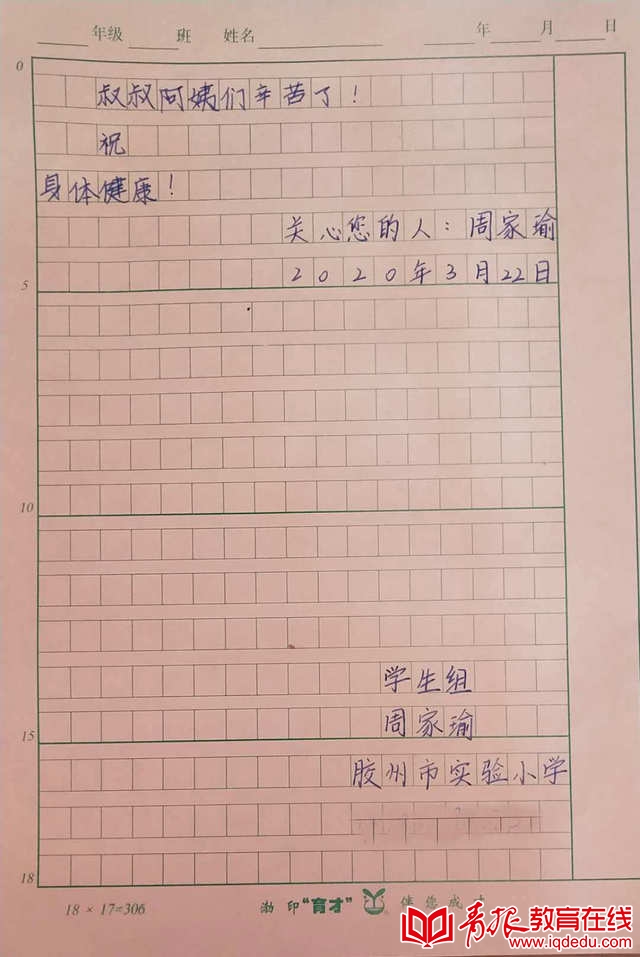 年级 班 姓名 年 月 日
0
叔叔阿姨们辛苦了!
祝
身体健康!
关心您的人:周家瑜
2020年3月22日
5
10
学生组
周家瑜
15
胶州市实验小学
18
18 × 17=306 渤 印“育才” 伴您成才
青报教育在线
www.iqdedu.com